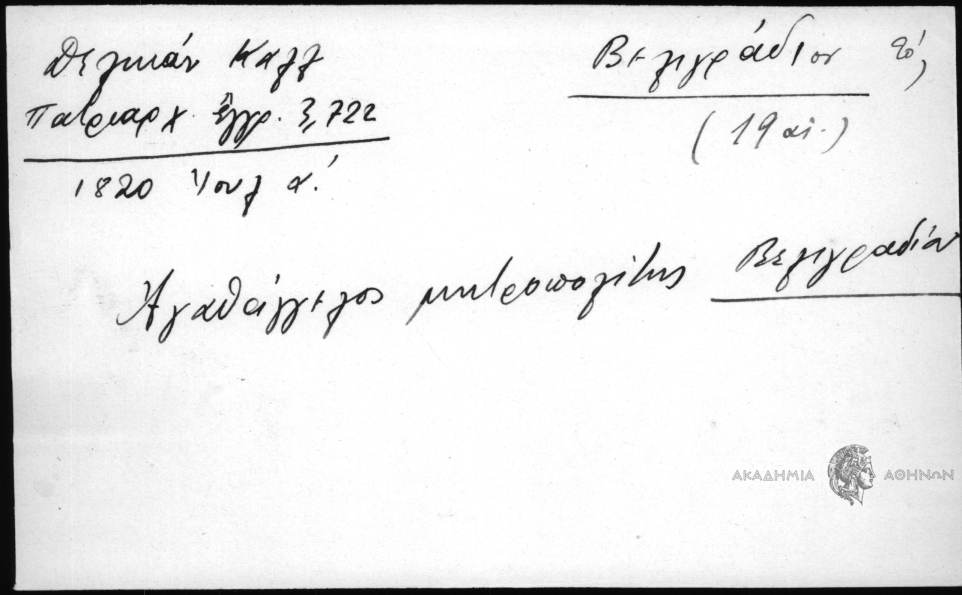 Δελικάν Καλλ
Πατριαρχ. ἔγγρ. 3,722
1820 Ἰουλ α΄.
Βελιγράδιον τό,
(19 αἰ.)
Ἀγαθάγγελος μητροπολίτης Βελιγραδίου
ΑΚΑΔΗΜΙΑ ΑΘΗΝΩΝ